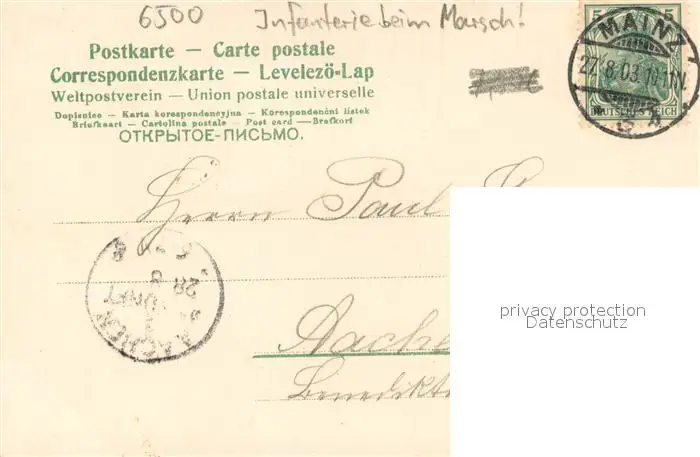 6500 Infanterie beim Marsch!
Postkarte — Carte postale
Correspondenzkarte — Levelező-Lap
Weltpostverein — Union postale universelle
Dopisnice — Karta korespondencyjna — Korespondenční lístek
Briefkaart — Cartolina postale — Post card — Brefkort
ОТКРЫТОЕ-ПИСЬМО.
5 5
MAINZ
27.8.03.
DEUTSCHES REICH
Herrn Paul
AACHEN
28 8
Aache
Benedikt
privacy protection
Datenschutz